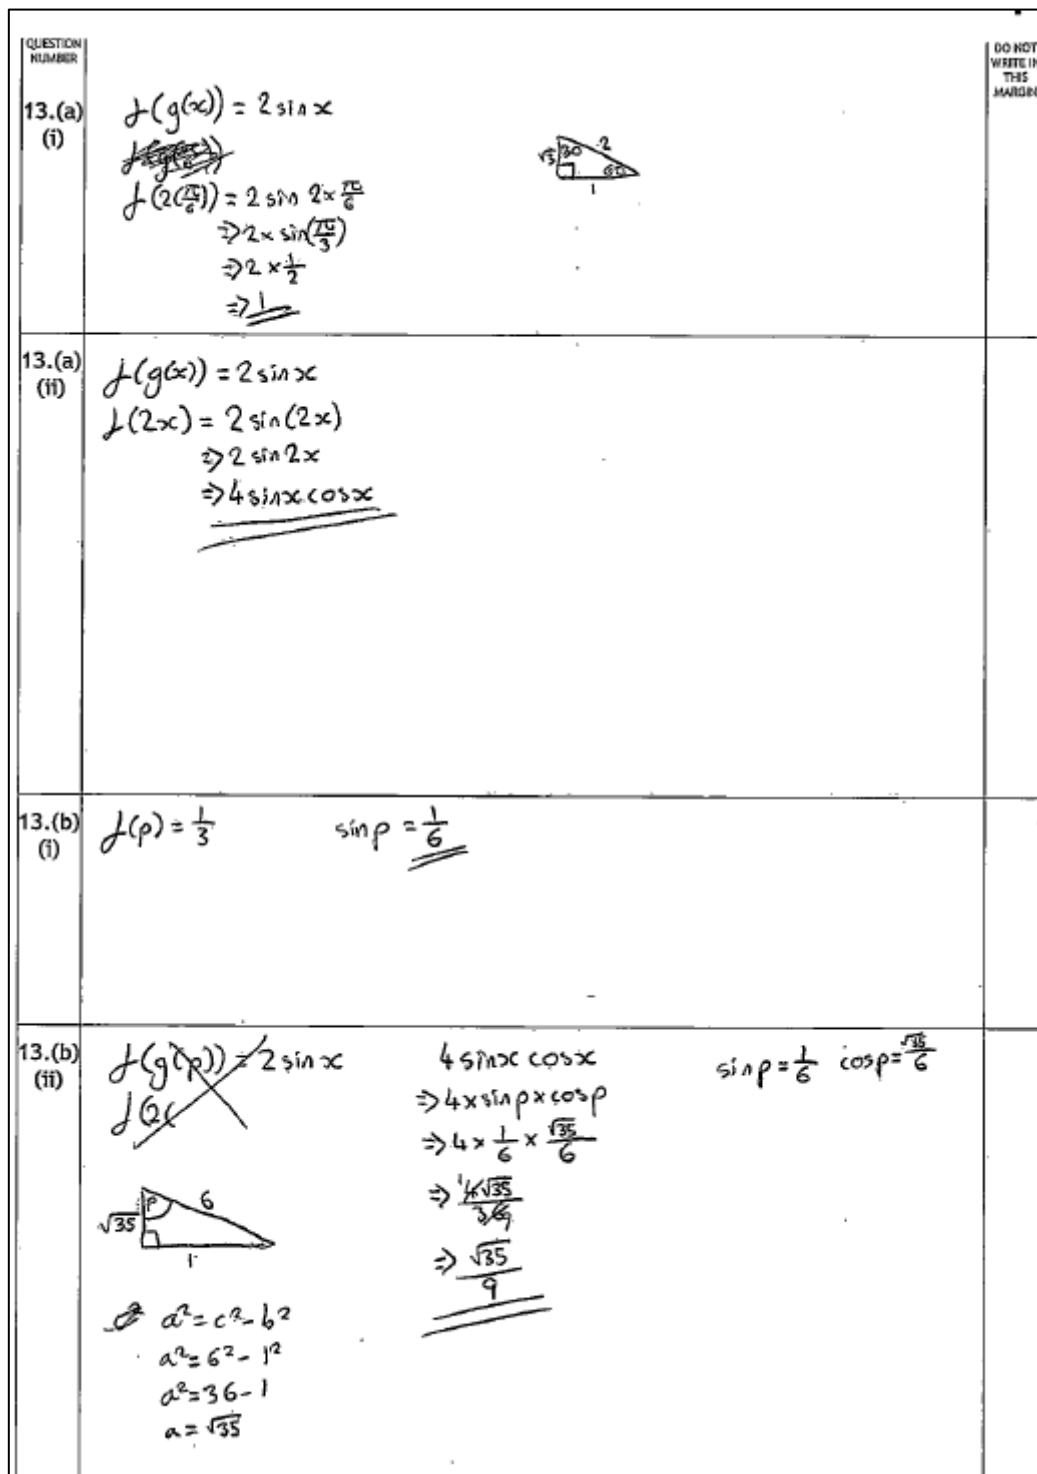 QUESTION NUMBER
DO NOT WRITE IN THIS MARGIN
13.(a) (i)
f(g(x)) = 2 sin x
f(2(π/6)) = 2 sin 2 × π/6
⇒ 2 × sin(π/3)
⇒ 2 × 1/2
⇒ 1
√3 30 2 60 1
13.(a) (ii)
f(g(x)) = 2 sin x
f(2x) = 2 sin(2x)
⇒ 2 sin 2x
⇒ 4 sin x cos x
13.(b) (i)
f(p) = 1/3
sin p = 1/6
13.(b) (ii)
f(g(p)) = 2 sin x
f(2(
√35 p 6 1
a² = c² - b²
a² = 6² - 1²
a² = 36 - 1
a = √35
4 sin x cos x
⇒ 4 × sin p × cos p
⇒ 4 × 1/6 × √35/6
⇒ 4√35/36
⇒ √35/9
sin p = 1/6 cos p = √35/6